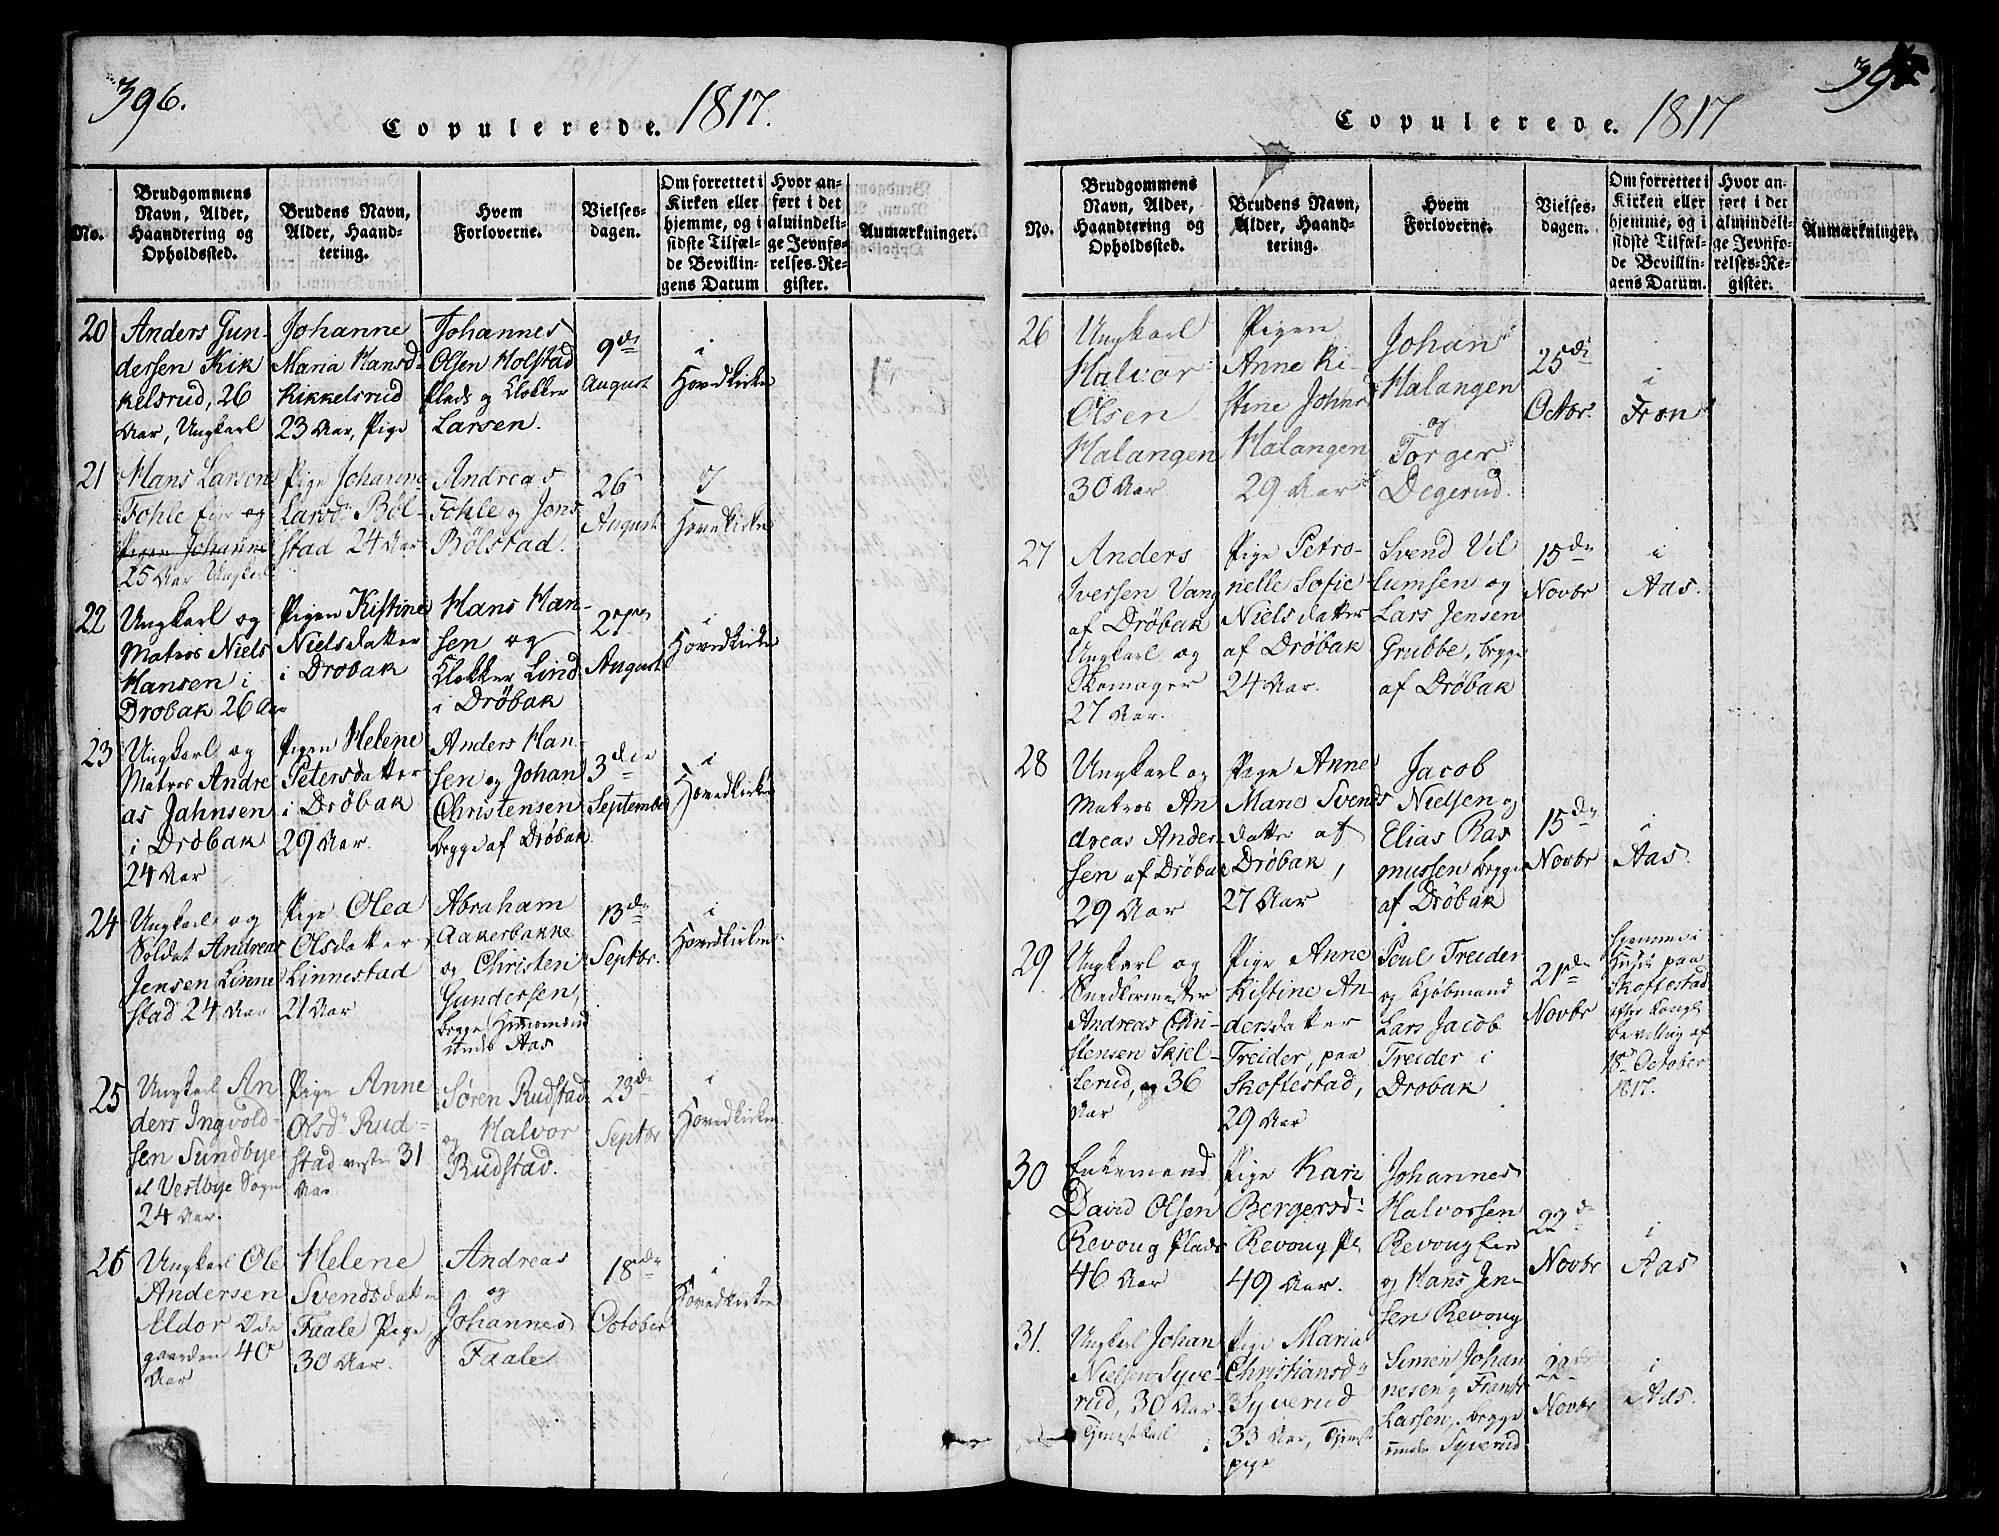 396.
Copulerede. 1817.
No.
Brudgommens
Navn, Alder,
Haandtering og
Opholdssted.
Brudens Navn,
Alder, Haand-
tering.
Hvem
Forloverne.
Vielses-
dagen.
Om forrettet i
Kirken eller
hjemme, og i
sidste Tilfæl-
de Bevillin-
gens Datum
Hvor an-
ført i det
almindeli-
ge Jevnfø-
relses-Re-
gister.
Anmærkninger.
20
Anders Gun-
dersen Kik
kelsrud, 26
Aar, Ungkarl
Johanne
Maria Hansd
Kikkelsrud
23 Aar, Pige
Johannes
Olsen Holstad
Plads og Klokker
Larsen.
9de
August
i
Hovedkirke
21
Hans Larsen
Fohle eier og
Pigen Johanne
25 Aar Ungkarl
Pige Johanne
Larsd. Böl-
stad 24 Aar
Andreas
Fohle og Jens
Bölstad.
26
August
i
Hovedkirke
22
Ungkarl og
Matros Niels
Hansen i
Drobak 26 Aar
Pigen Kistine
Nielsdatter
i Drobak
Hans Han-
sen og
Klokker Lind
i Dröbak
27
August
i
Hovedkirke
23
Ungkarl og
Matros Andre
as Jahnsen
i Dröbak
24 Aar
Pigen Helene
Petersdatter
i Dröbak
29 Aar.
Anders Han-
sen og Johan
Christensen
begge af Dröbak
3die
September
i
Hovedkirke
24
Ungkarl og
Soldat Andreas
Jensen Linne
stad 24 Aar
Pige Olea
Olsdatter
Linnestad
21 Aar
Abraham
Aakerbakke
og Christen
Gundersen,
begge Huusmænd
under Aas
13de
Septbr.
i
Hovedkirken.
25
Ungkarl An
ders Ingvold-
sen Sundbye
af Vestbye Sogn
24 Aar.
Pige Anne
Olsd. Rud-
stad 31
Aar
Sören Rudstad
og Halvor
Rudstad.
23de
Septbr
i
Hovedkirken
26
Ungkarl Ole
Andersen
Aldor Öde
gaarden 40
Aar
Helene
Svendsdatter
Faale Pige
30 Aar.
Andreas
og
Johannes
Faale
18de
October
i
Hovedkirken
Copulerede. 1817
No.
Brudgommens
Navn, Alder,
Haandtering og
Opholdssted.
Brudens Navn,
Alder, Haand-
tering.
Hvem
Forloverne.
Vielses-
dagen.
Om forrettet i
Kirken eller
hjemme, og i
sidste Tilfæl-
de Bevillin-
gens Datum.
Hvor an-
ført i det
almindeli-
ge Jevnfø-
relses-Re-
gister.
Anmærkninger.
26
Ungkarl
Halvor
Olsen
Halangen
30 Aar
Pigen
Anne Ki-
stine Johns
Halangen
29 Aar
Johan
Halangen
og
Torger
Degerud.
25de
Octbr.
i
Fron
27
Anders
Iversen Vang
af Dröbak
Ungkarl og
Skomager
27 Aar.
Pige Petro-
nelle Sofie
Nielsdatter
af Dröbak
24 Aar.
Svend Vil
lumsen og
Lars Jensen
Grubbe, begge
af Dröbak
15de
Novbr
i
Aas.
28
Ungkarl og
Matros An
dreas Ander-
sen af Dröbak
29 Aar
Pige Anne
Maria Svends
datter af
Dröbak,
27 Aar
Jacob
Nielsen og
Elias Ras
mussen begge
af Dröbak
15de
Novbr
i
Aas.
29
Ungkarl og
Snedkermester
Andreas Chri-
stensen Skiel-
lerud, og 36
Aar
Pige Anne
Kistine An-
dersdatter
Treider, paa
Skoftestad,
29 Aar
Poul Treider
og Kjöbmand
Lars Jacob
Treider i
Drobak
21de
Novbr
hjemme i
Huset paa
Skoftestad
efter Kongl
Bevilling af
18 October
1817.
30
Enkemand
David Olsen
Revoug Plads
46 Aar
Pige Kari
Bergersd-
Revoug Pl
49 Aar.
Johannes
Halvorsen
Revoug eier
og Hans Jen-
sen Revoug
22de
Novbr
i
Aas
31.
Ungkarl Johan
Nielsen Syve-
rud, 30 Aar
Tjenestkarl
Pige Maria
Christiansd
Syverud
33 Aar, Tjenest
pige
Simen Johan
nesen og Frants
Larsen, begge
under Syverud
22de
Novbr
i
Aas.